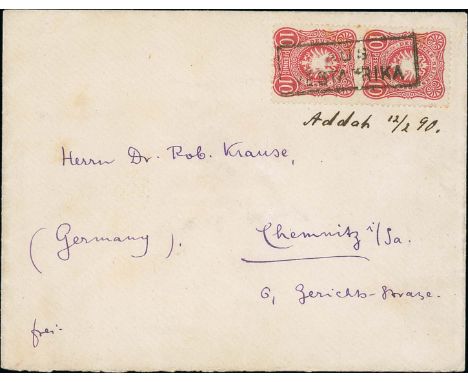 10 10
AUS
WESTAFRIKA
Addah 12/2 90.
Herrn Dr. Rob. Krause,
(Germany). Chemnitz i/Sa.
6, Gerichts-Strasze.
frei.